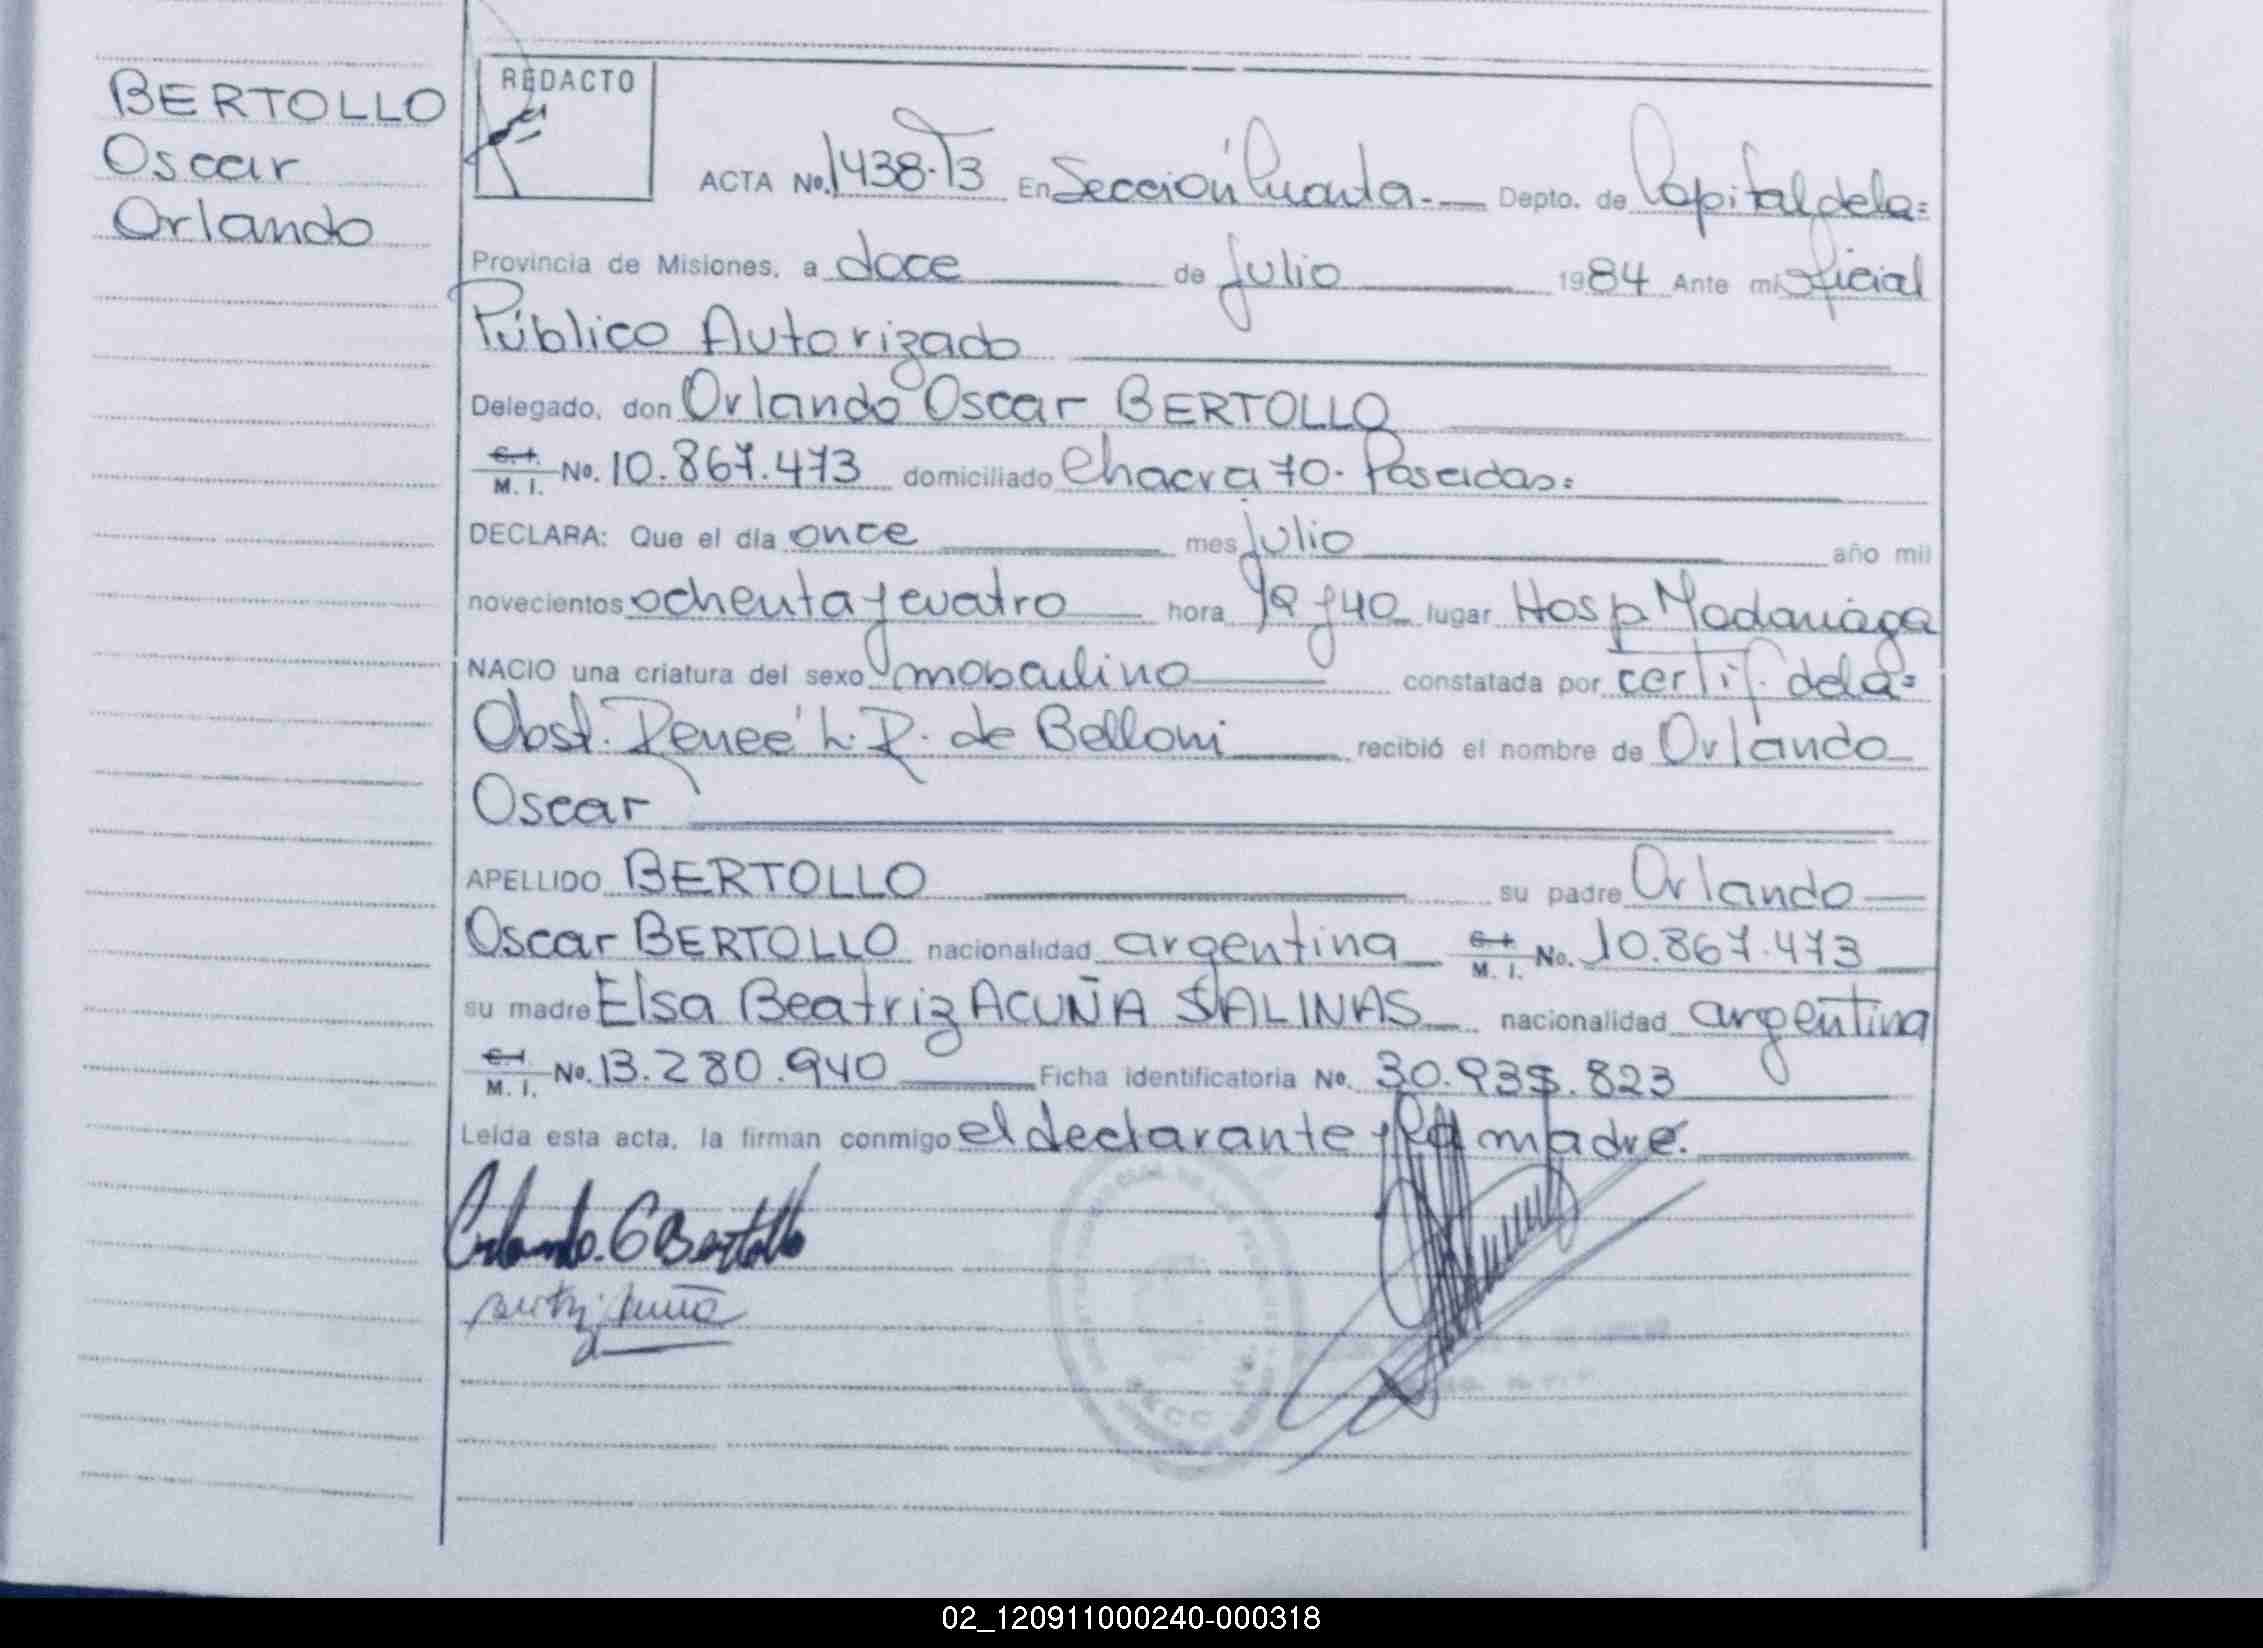 BERTOLLO
Oscar
Orlando
REDACTO
ACTA No. 1438-T3 En Sección Cuarta.- Depto. de Capital de la=
Provincia de Misiones, a doce de julio 1984 Ante mi Oficial
Público Autorizado
Delegado, don Orlando Oscar BERTOLLO
C. I.
M. I. No. 10.867.473 domiciliado Chacra 70- Posadas=
DECLARA: Que el día once mes julio año mil
novecientos ochenta y cuatro hora y 40 lugar Hosp Madariaga
NACIO una criatura del sexo masculino constatada por certif. de la=
Obst. Reneé L. R. de Belloni recibió el nombre de Orlando
Oscar
APELLIDO BERTOLLO su padre Orlando
Oscar BERTOLLO nacionalidad argentina C. I. M. I. No. 10.867.473
su madre Elsa Beatriz ACUÑA SALINAS nacionalidad argentina
C. I.
M. I. No. 13.280.940 Ficha identificatoria No. 30.935.823
Leída esta acta, la firman conmigo el declarante y la madre.
Orlando. O Bertollo
02_120911000240-000318